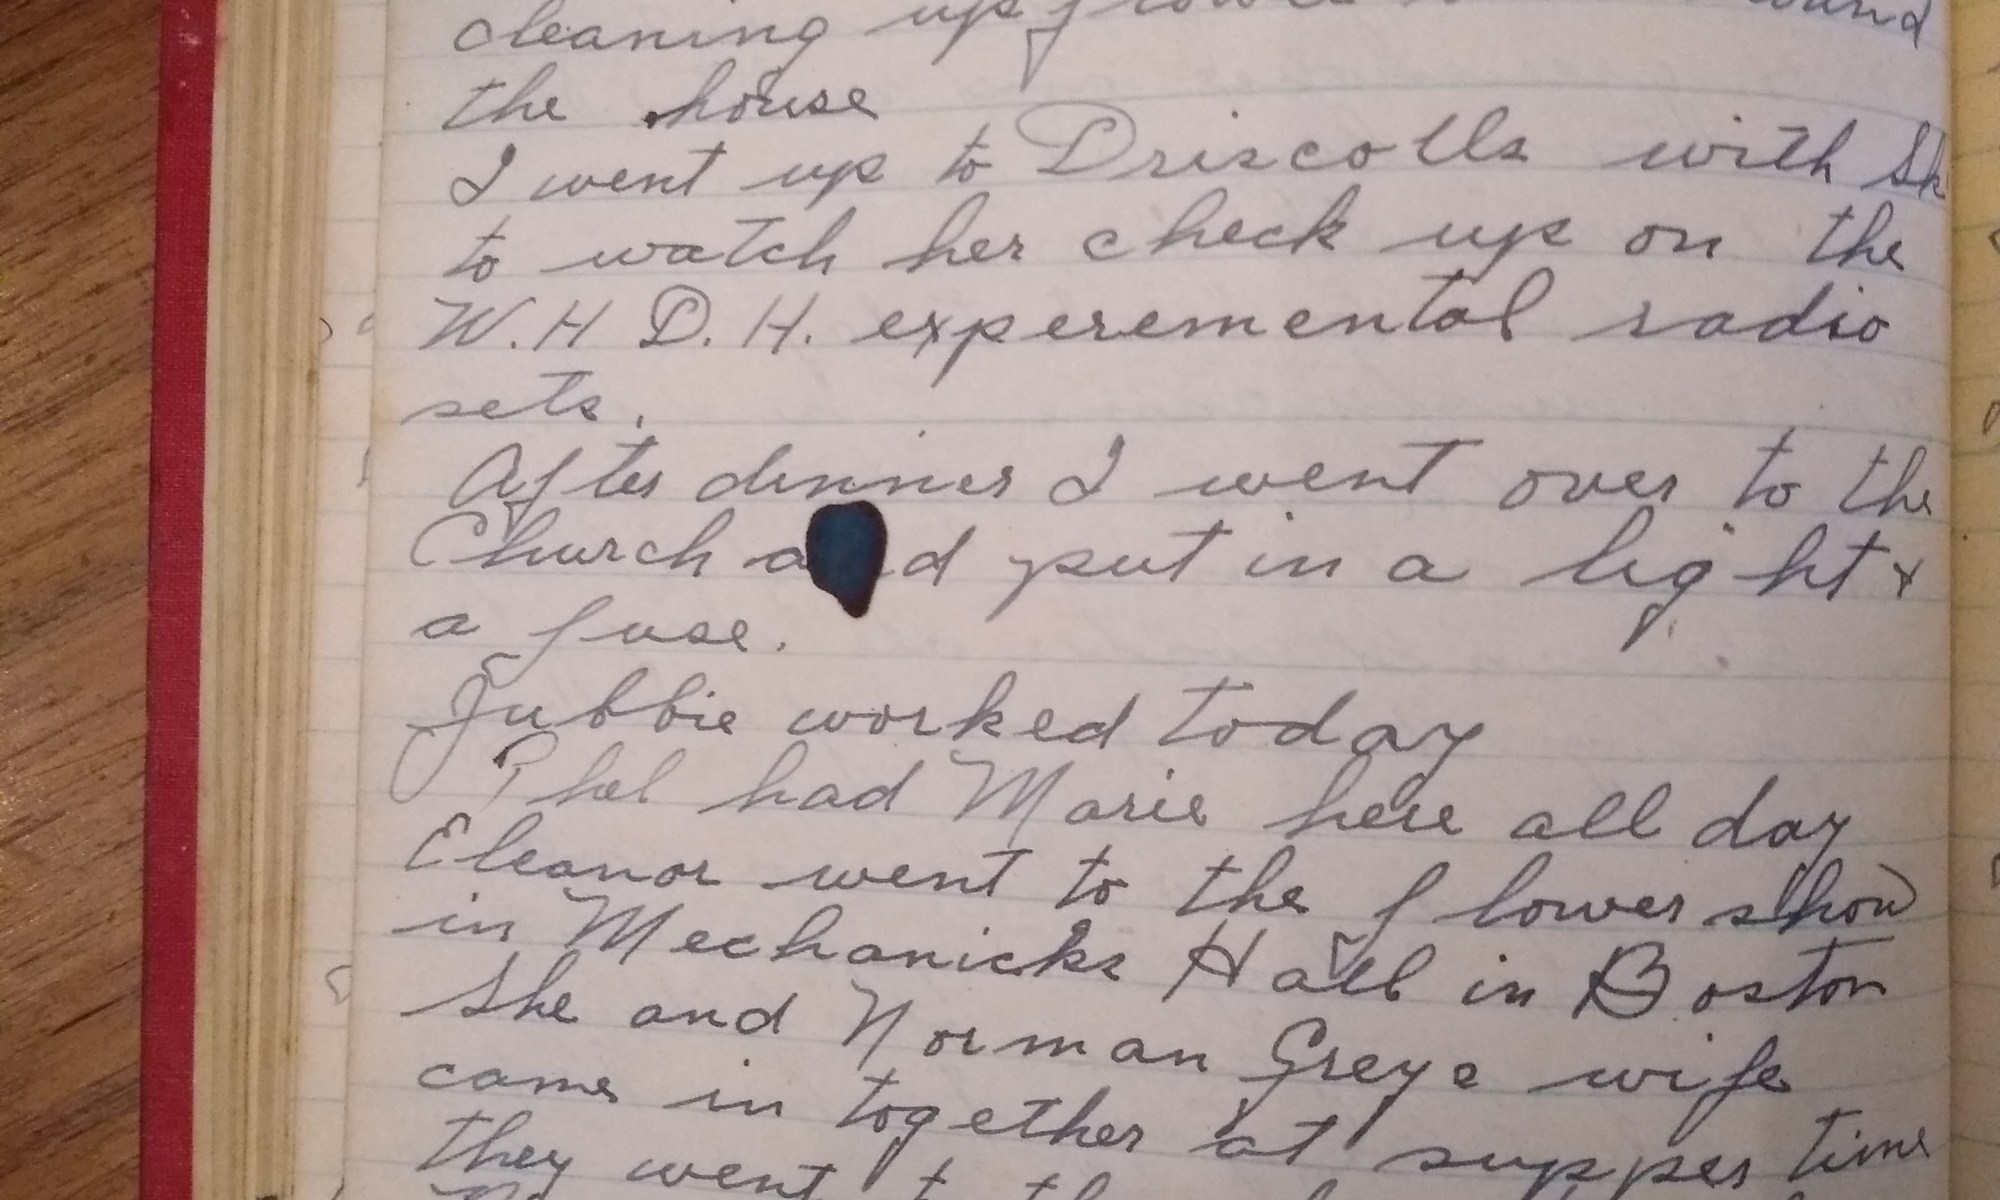 cleaning up flower around
the house
I went up to Driscolls with Sk
to watch her check up on the
W.H D.H. experemental radio
sets.
After dinner I went over to the
Church and put in a light &
a fuse.
Jubbie worked today
Phel had Marie here all day
Eleanor went to the flower show
in Mechanicks Hall in Boston
She and Norman Greys wife
came in together at supper time
they went to the